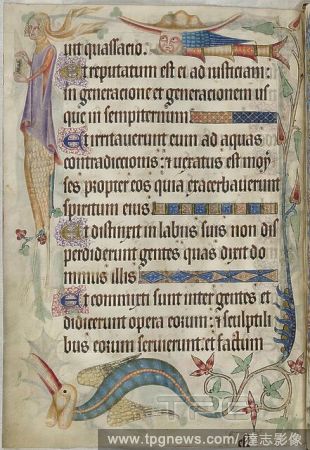 uit quassacio.
Et reputatum est ei ad iusticiam:
in generacione et generacionem us
que in sempiternum
Et irritauerunt eum ad aquas
contradiccionis: et uexatus est moy
ses propter eos quia exacerbauerunt
spiritum eius
Et distinxit in labiis suis non dis
perdiderunt gentes quas dixit do
minus illis
Et commixti sunt inter gentes et
didicerunt opera eorum: et sculptili
bus eorum seruierunt: et factum
TPG
www.tpgnews.com/達志影像